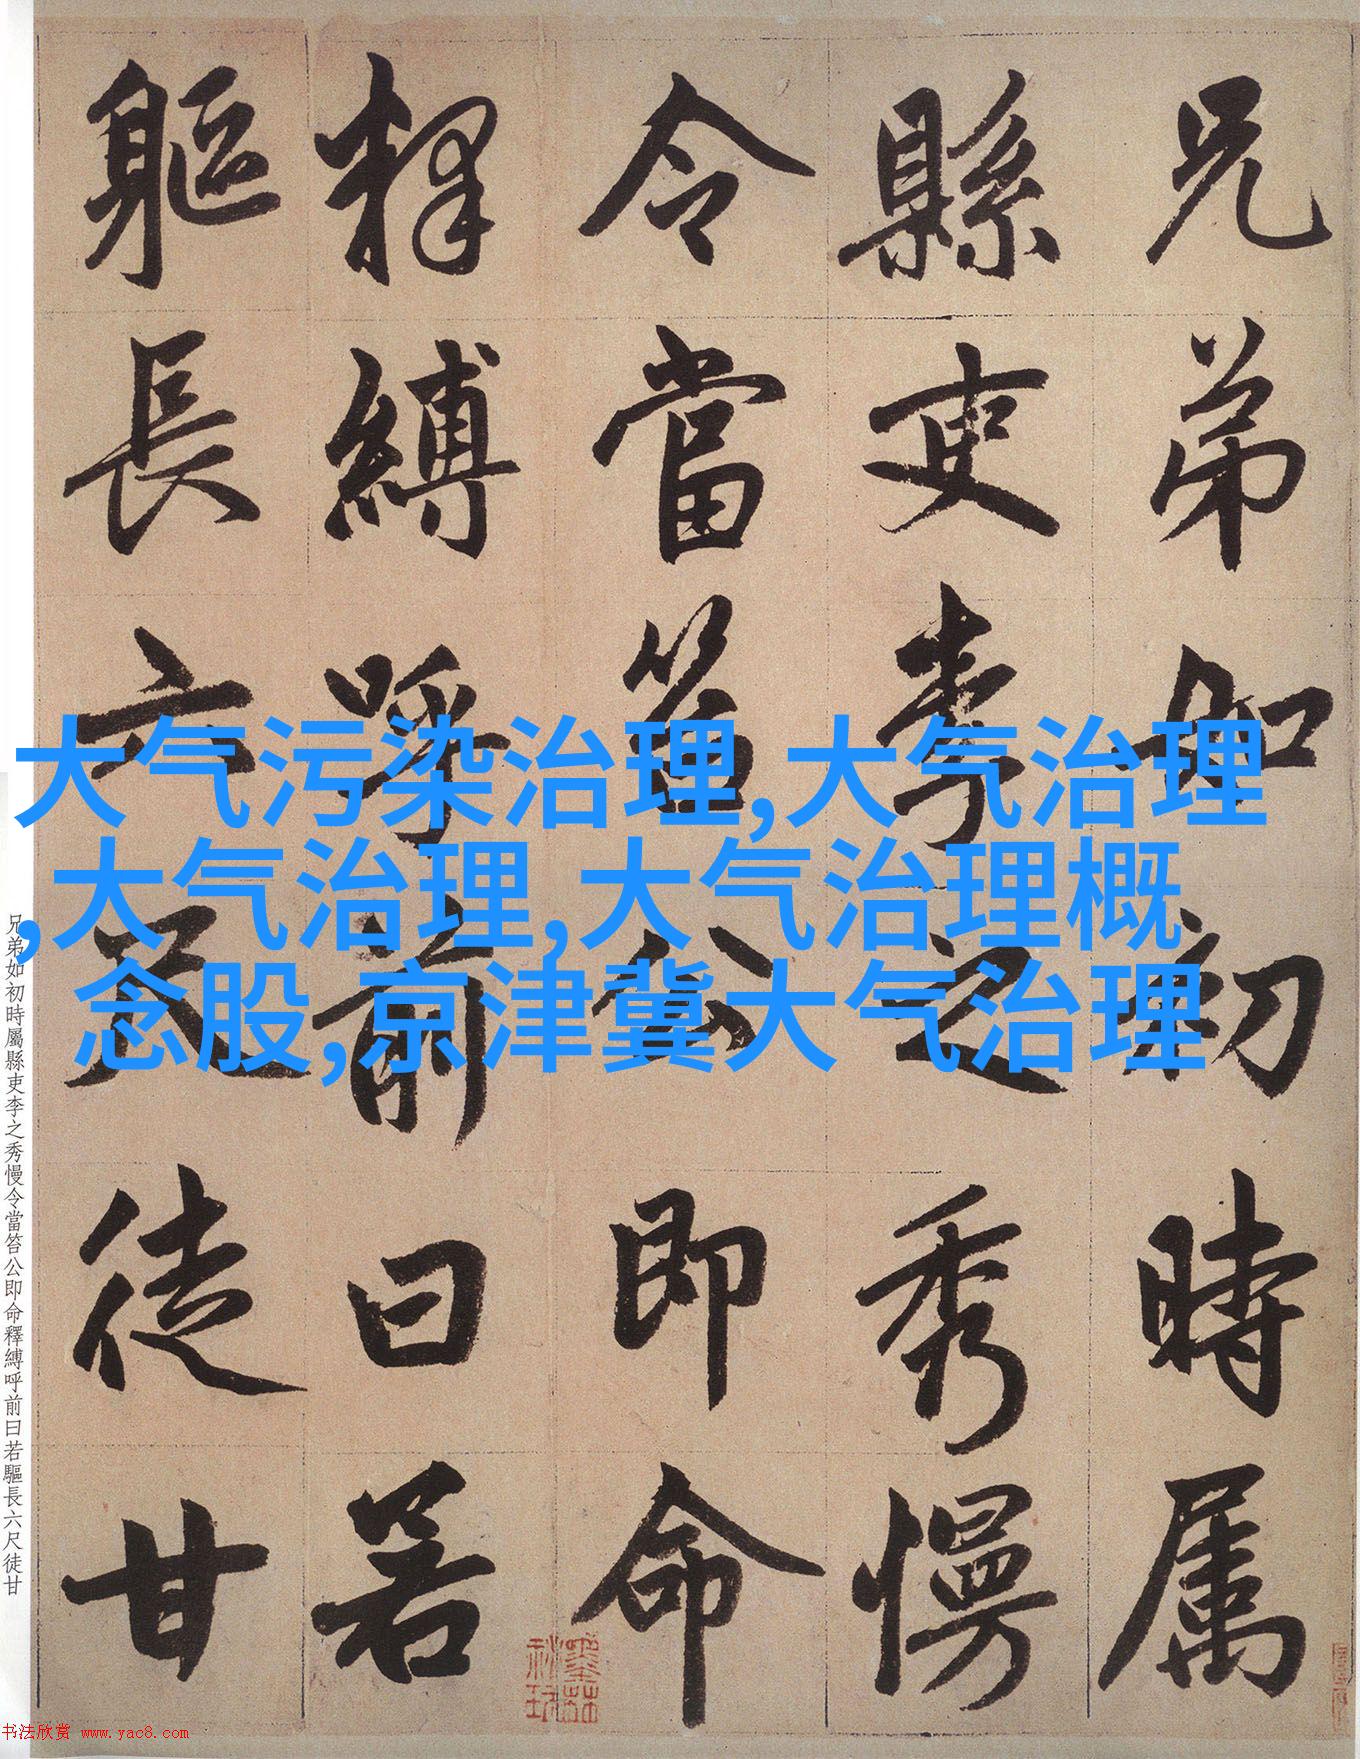 大气污染治理,大气治理
,大气治理,大气治理概
念股,京津冀大气治理
兄弟如初時属
縣吏李之秀慢
令當笞公即命
釋縛呼前曰若
軀長六尺徒甘
兄弟如初時屬縣吏李之秀慢令當笞公即命釋縛呼前曰若驅長六尺徒甘
书法欣赏 www.yac8.com